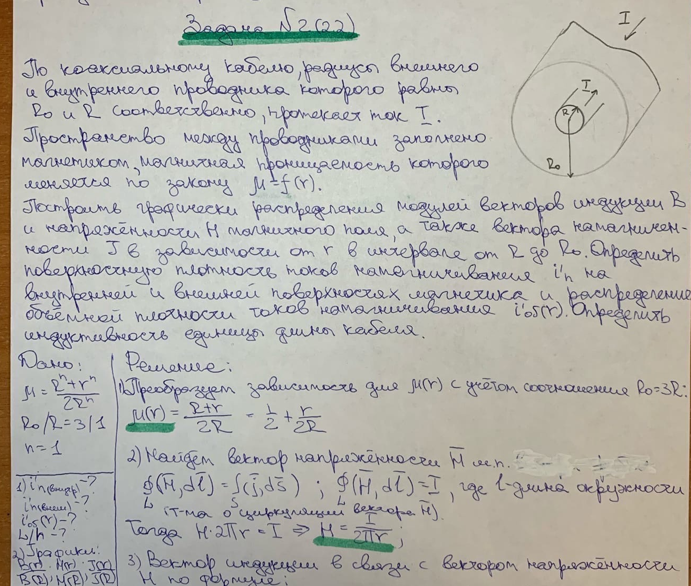 Задача №2(2.2)
I
I
R
R₀
По коаксиальному кабелю, радиусы внешнего
и внутреннего проводника которого равны
R₀ и R соответственно, протекает ток I.
Пространство между проводниками заполнено
магнетиком, магничная проницаемость которого
меняется по закону μ=f(r).
Построить графически распределения модулей векторов индукции B
и напряжённости H магнитного поля, а также вектора намагничен-
ности J в зависимости от r в интервале от R до R₀. Определить
поверхностную плотность токов намагничивания i'п на
внутренней и внешней поверхностях магнетика и распределение
объёмной плотности токов намагничивания i'об(r). Определить
индуктивность единицы длины кабеля.
Дано:
μ = (Rⁿ+rⁿ)/(2Rⁿ)
R₀/R=3/1
n=1
1) i'п(внутр)-?
i'п(внеш)-?
i'об(r)-?
L/h-?
2) Графики:
B(r), H(r), J(r)
B(R), H(R), J(R)
Решение:
1. Преобразует зависимость для μ(r) с учётом соотношения R₀=3R:
μ(r) = (R+r)/(2R) = 1/2 + r/(2R)
2) Найдём вектор напряжённости H̄ м.п.
∮L(H̄,dl̄)=∫S(j̄,ds̄) ; ∮L(H̄,dl̄)=I, где l-длина окружности
(т-ма о циркуляции вектора H).
Тогда H·2πr = I ⇒ H = I/(2πr);
3) Вектор индукции в связи с вектором напряжённости
H по формуле: